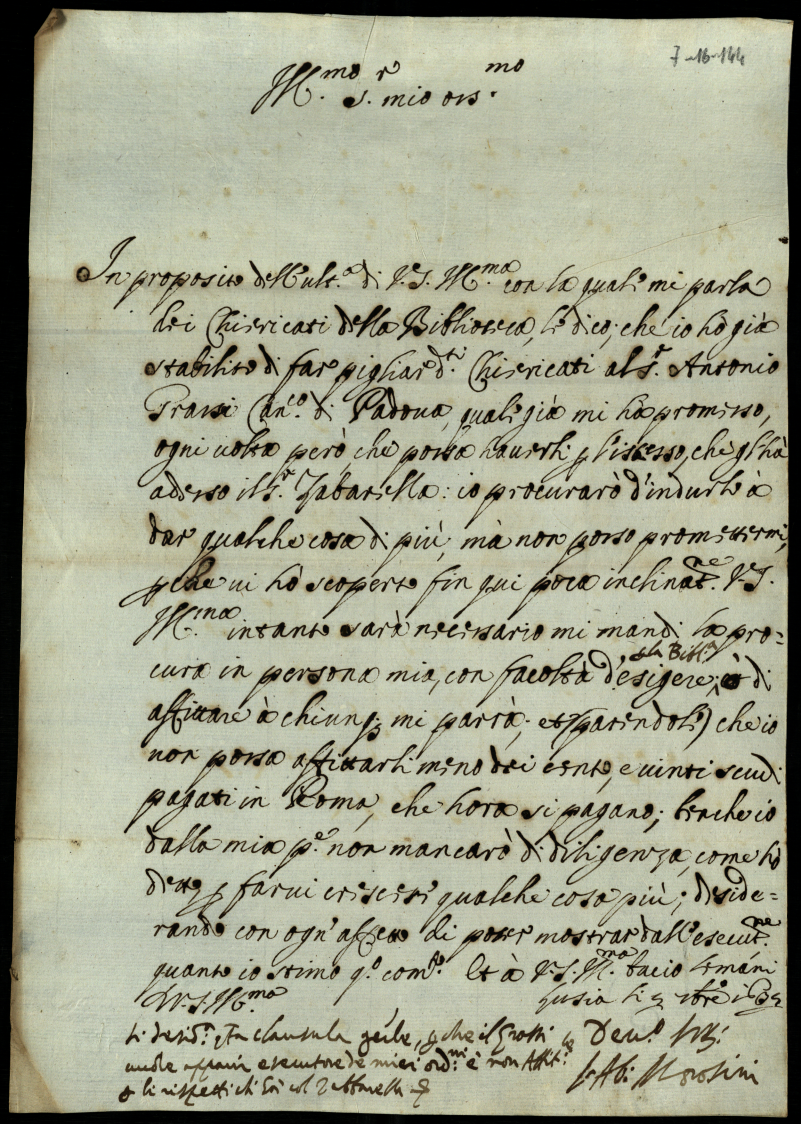 7-16-144
Ill.mo S.r mio oss.mo
In proposito dell'ult.a di V.S. Ill.ma con la quale mi parla
dei Chiericati della Biblioteca, le dico, che io hò già
stabilito di far pigliar d.ti Chiericati al S.r Antonio
Grassi Can.co di Padova, quale già mi hà promesso,
ogni volta però, che possa haverli p l'istesso, che gl'hà
adesso il S.r Zabarella: io procurarò d'indurlo à
dar qualche cosa di più, mà non posso promettermi,
pche vi hò scoperto fin qui poca inclinat.ne V.S.
Ill.ma intanto sarà necessario mi mandi la pro=
cura in persona mia, con facoltà d'esigere, p la Bibl.a et di
affittare à chiunq; mi parrà; et (parendoli) che io
non possa affittarli meno dei cento, e vinti scudi
pagati in Roma, che hora si pagano; benche io
dalla mia p.e non mancarò di diligenza, come hò
detto, p farvi crescere qualche cosa più; deside=
rando con ogn'affetto di poter mostrar dall'esecut.ne
quanto io stimo q.o com.do Et à V.S. Ill.ma bacio le mani
Di V.S. Ill.ma
li desid.o clausula pche il Grassi
vuole esecutore de miei ord.ni e non Affit.e
li rispetti col Zabarella
Dev.o
Morosini